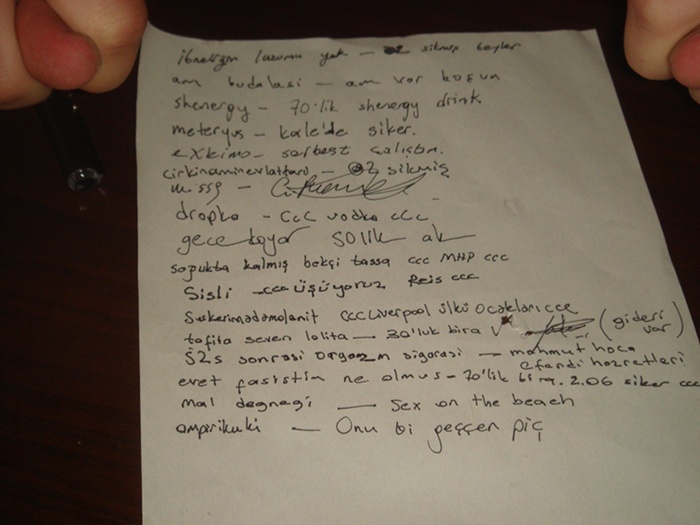 ibnelizm lazımu yok - 02 sikmiş beyler
am budalasi - am var koşun
shenergy - 70.lik shenergy drink
meteryus - kale'de siker.
exkimo - serbest çalıştım.
cirkinaminevlattard - 02 sikmiş
m.ssg -
dropka - ccc vodka ccc
gece koyar 50lik ak
soğukta kalmış bekçi tassa ccc MHP ccc
Sisli - ccc üşüyoruz Reis ccc
Sukerimadamolanit ccc Liverpool ülkü ocakları ccc
tofita seven lolita - 30'luk bira V (gideri var)
52s sonrasi orgazm sigarasi - mahmut hoca efendi hazretleri
evet faşistim ne olmuş - 70'lik bi 2.06 siker ccc
mal degnegi - Sex on the beach
ampirikuki - Onu bi geççen piç